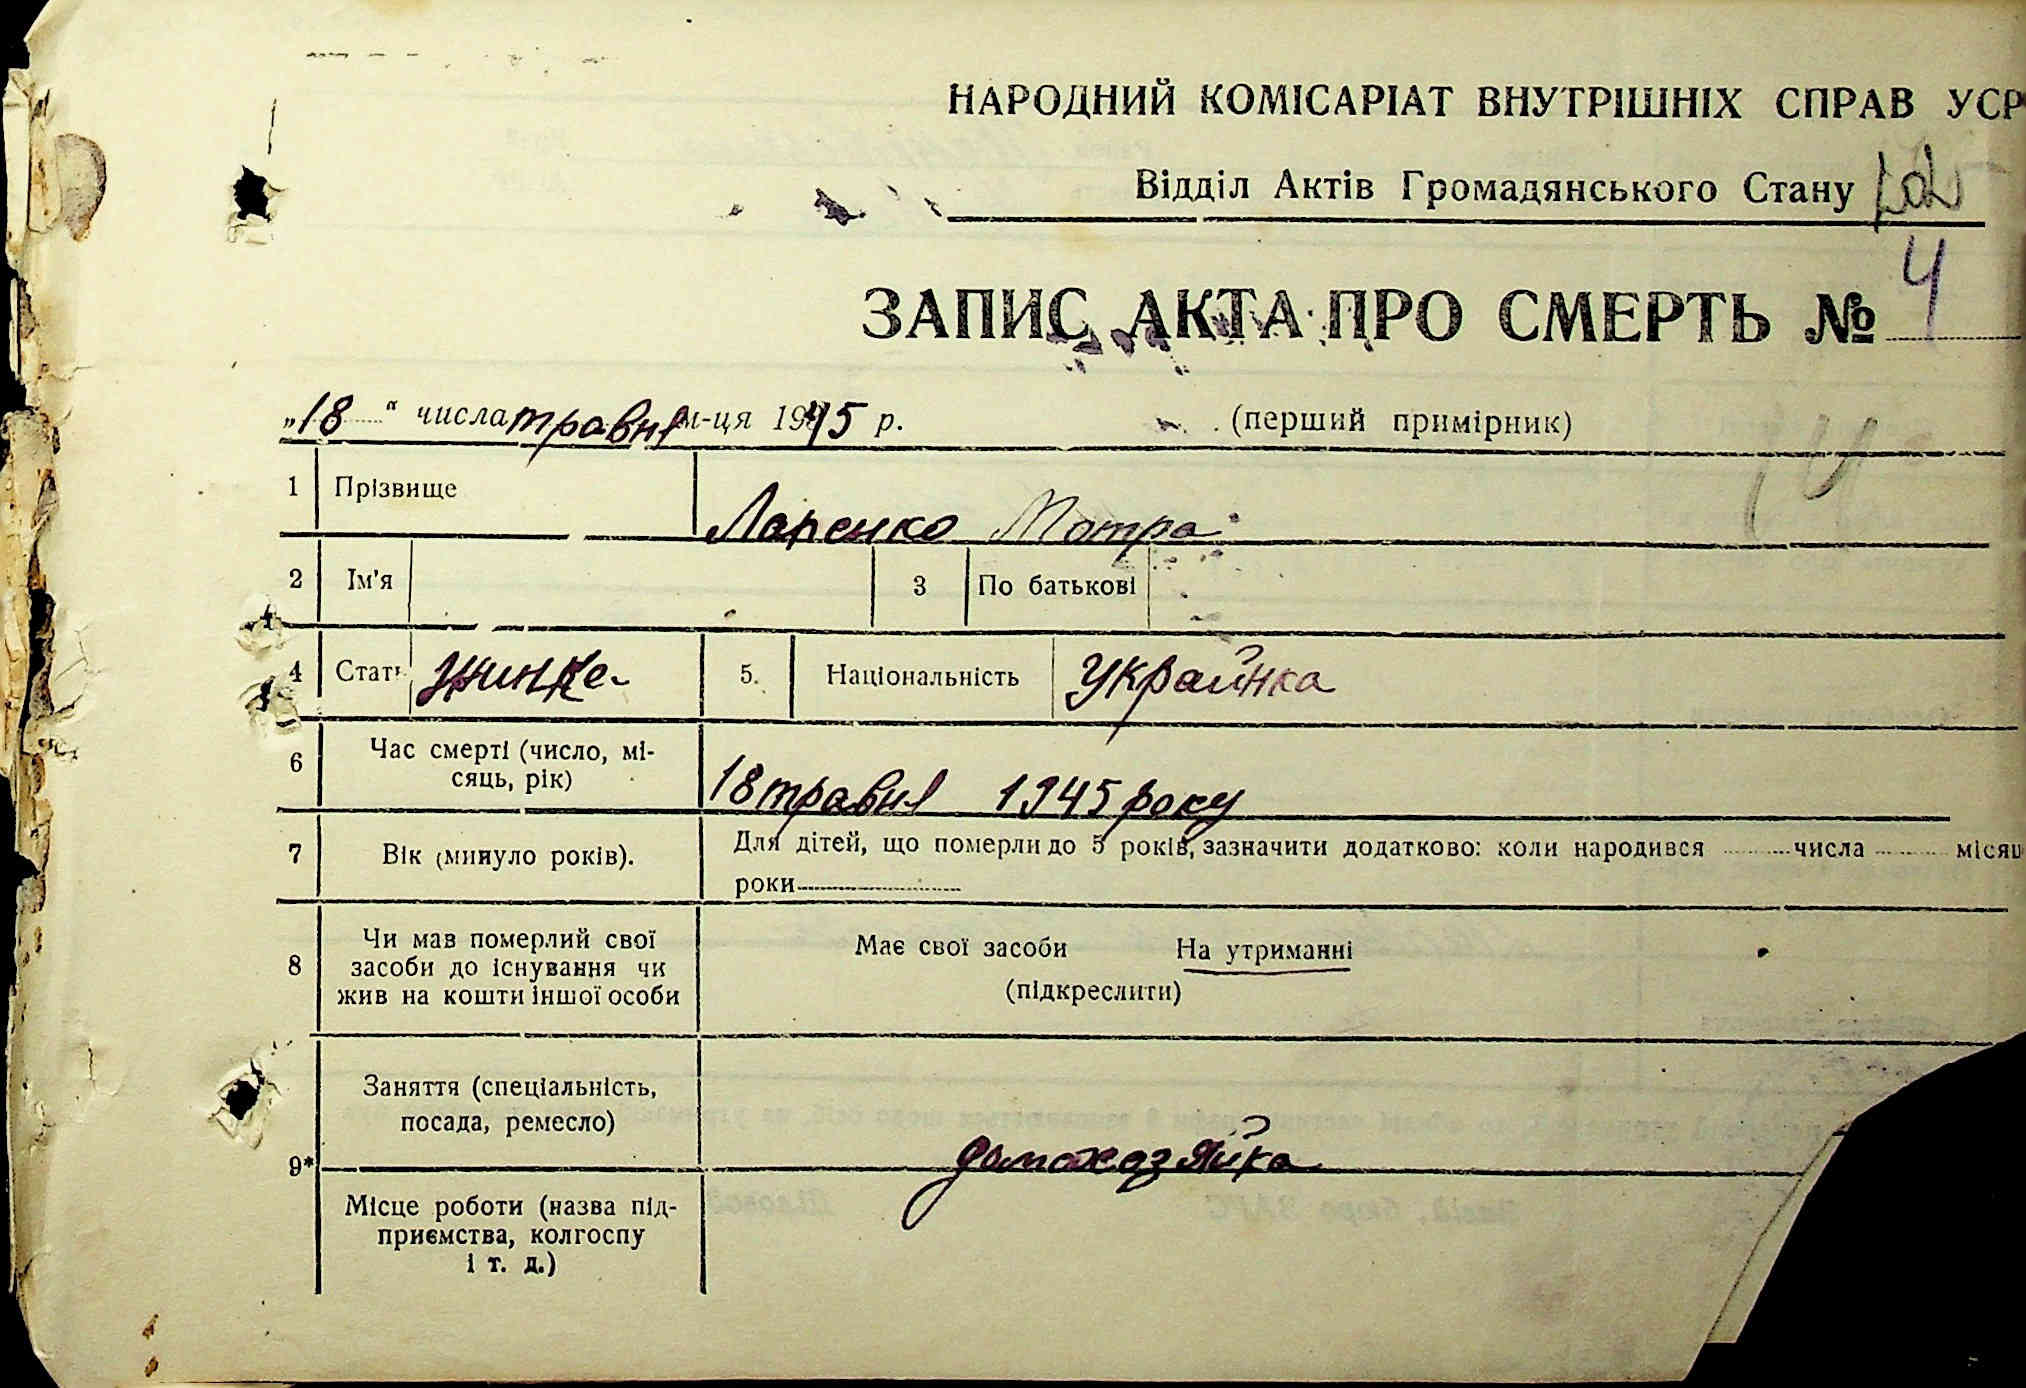 НАРОДНИЙ КОМІСАРІАТ ВНУТРІШНІХ СПРАВ УСР
Відділ Актів Громадянського Стану
ЗАПИС АКТА ПРО СМЕРТЬ № 4
„18“ числа травня м-ця 1945 р. (перший примірник)
1 Прізвище Лапенко Мотра
2 Ім'я 3 По батькові
4 Стать жинке 5. Національність Украйнка
6 Час смерті (число, мі-
сяць, рік) 18 травня 1945 року
7 Вік (минуло років). Для дітей, що померли до 5 років, зазначити додатково: коли народився числа місяц
роки
8 Чи мав померлий свої
засоби до існування чи
жив на кошти іншої особи
Має свої засоби На утриманні
(підкреслити)
9* Заняття (спеціальність,
посада, ремесло) домохозяйка
Місце роботи (назва під-
приємства, колгоспу
і т. д.)